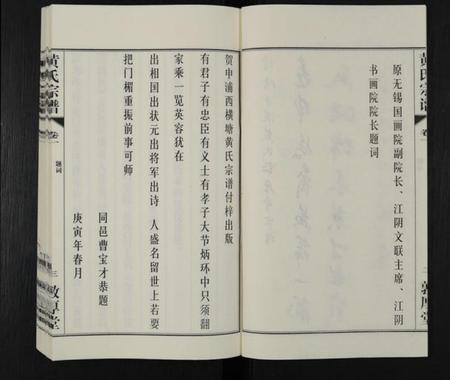 原无锡国画院副院长、江阴文联主席、江阴
书画院院长题词
黄氏宗谱
卷一
敦厚堂
贺申浦西横塘黄氏宗谱付梓出版
有君子有忠臣有义士有孝子大节炳环中只须翻
家乘一览英容犹在
出相国出状元出将军出诗 人盛名留世上若要
把门楣重振前事可师
同邑曹宝才恭题
庚寅年春月
黄氏宗谱
卷一
题词
三
敦厚堂